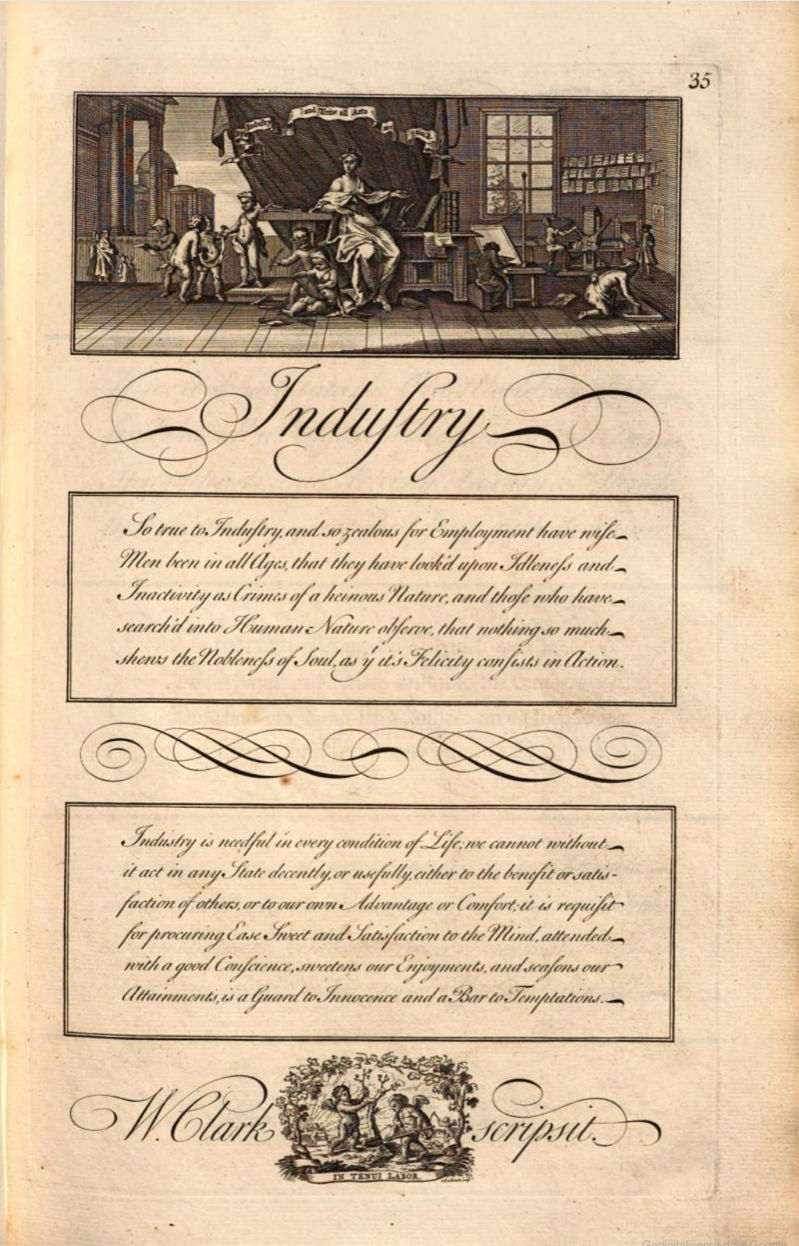 35
and Time all Arts
Induſtry
So true to Induſtry, and so zealous for Employment have wiſe
Men been in all Ages, that they have look'd upon Idleneſs and
Inactivity as Crimes of a heinous Nature, and thoſe who have
search'd into Human-Nature obſerve, that nothing so much
shews the Nobleneſs of Soul, as yᵗ it's Felicity conſists in Action.
Industry is needful in every condition of Life; we cannot without
it act in any State decently, or usefully, either to the benefit or satis-
faction of others, or to our own Advantage or Comfort; it is requiſit
for procuring Ease Sweet and Satisfaction to the Mind, attended
with a good Conſcience, sweetens our Enjoyments, and seaſons our
Attainments, is a Guard to Innocence and a Bar to Temptations.
W. Clark scripsit.
IN TENUI LABOR.